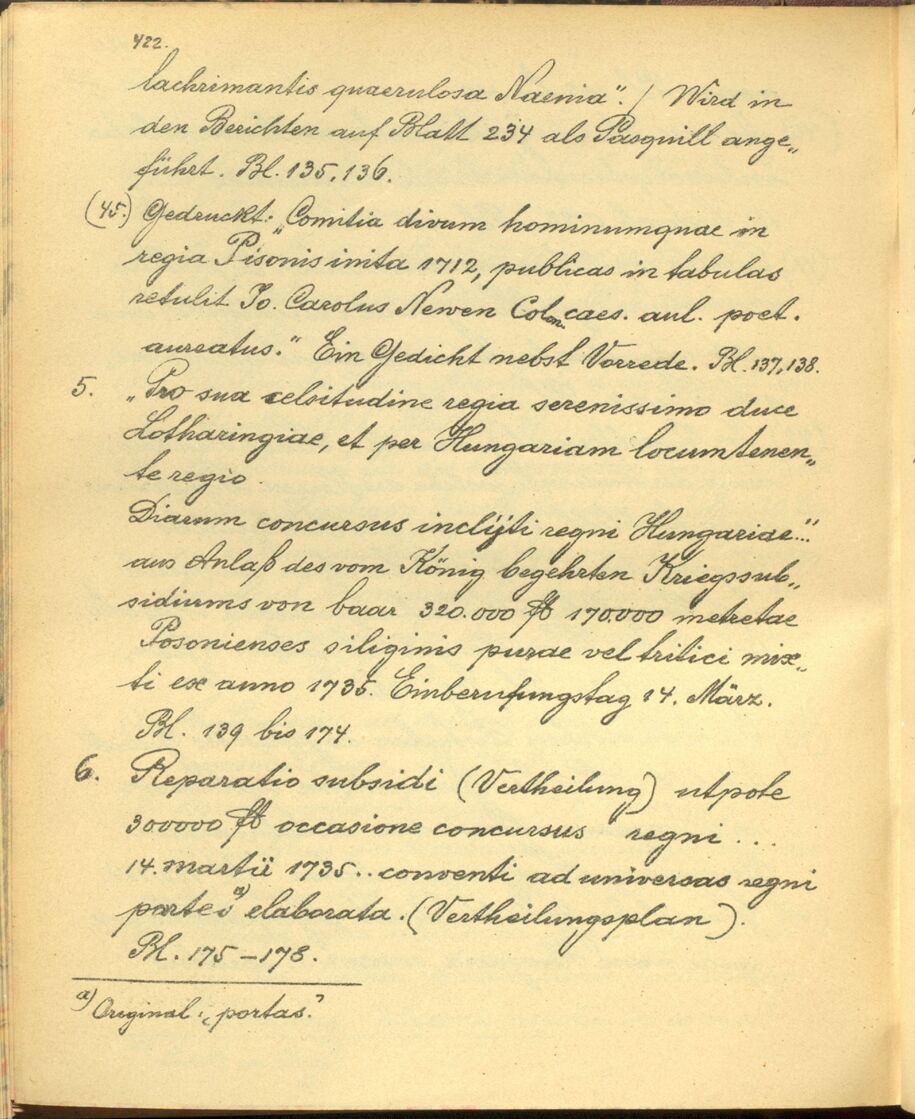 422.
lachrimantis quaerulosa Naenia". / Wird in
den Berichten auf Blatt 234 als Pasquill ange„
führt. Bl. 135, 136.
(45.) Gedruckt: „Comitia divum hominumquae in
regia Pisonis inita 1712, publicas in tabulas
retulit Jo. Carolus Newen Colon. caes. aul. poet.
aureatus." Ein Gedicht nebst Vorrede. Bl. 137, 138.
5. „Pro sua celsitudine regia serenissimo duce
Lotharingiae, et per Hungariam locumtenen„
te regio.
Diarum concursus inclÿti regni Hungariae..."
aus Anlaß des vom König begehrten Kriegssub„
sidiums von baar 320.000 ft 170.000 metretae
Posonienses siliginis purae vel tritici mix„
ti ex anno 1735. Einberufungstag 14. März.
Bl. 139 bis 174.
6. Reparatio subsidi (Vertheilung) utpote
300000 ft occasione concursus regni ...
14. martii 1735.. conventi ad universas regni
partes a) elaborata. (Vertheilungsplan).
Bl. 175 – 178.
a) Original: „portas."